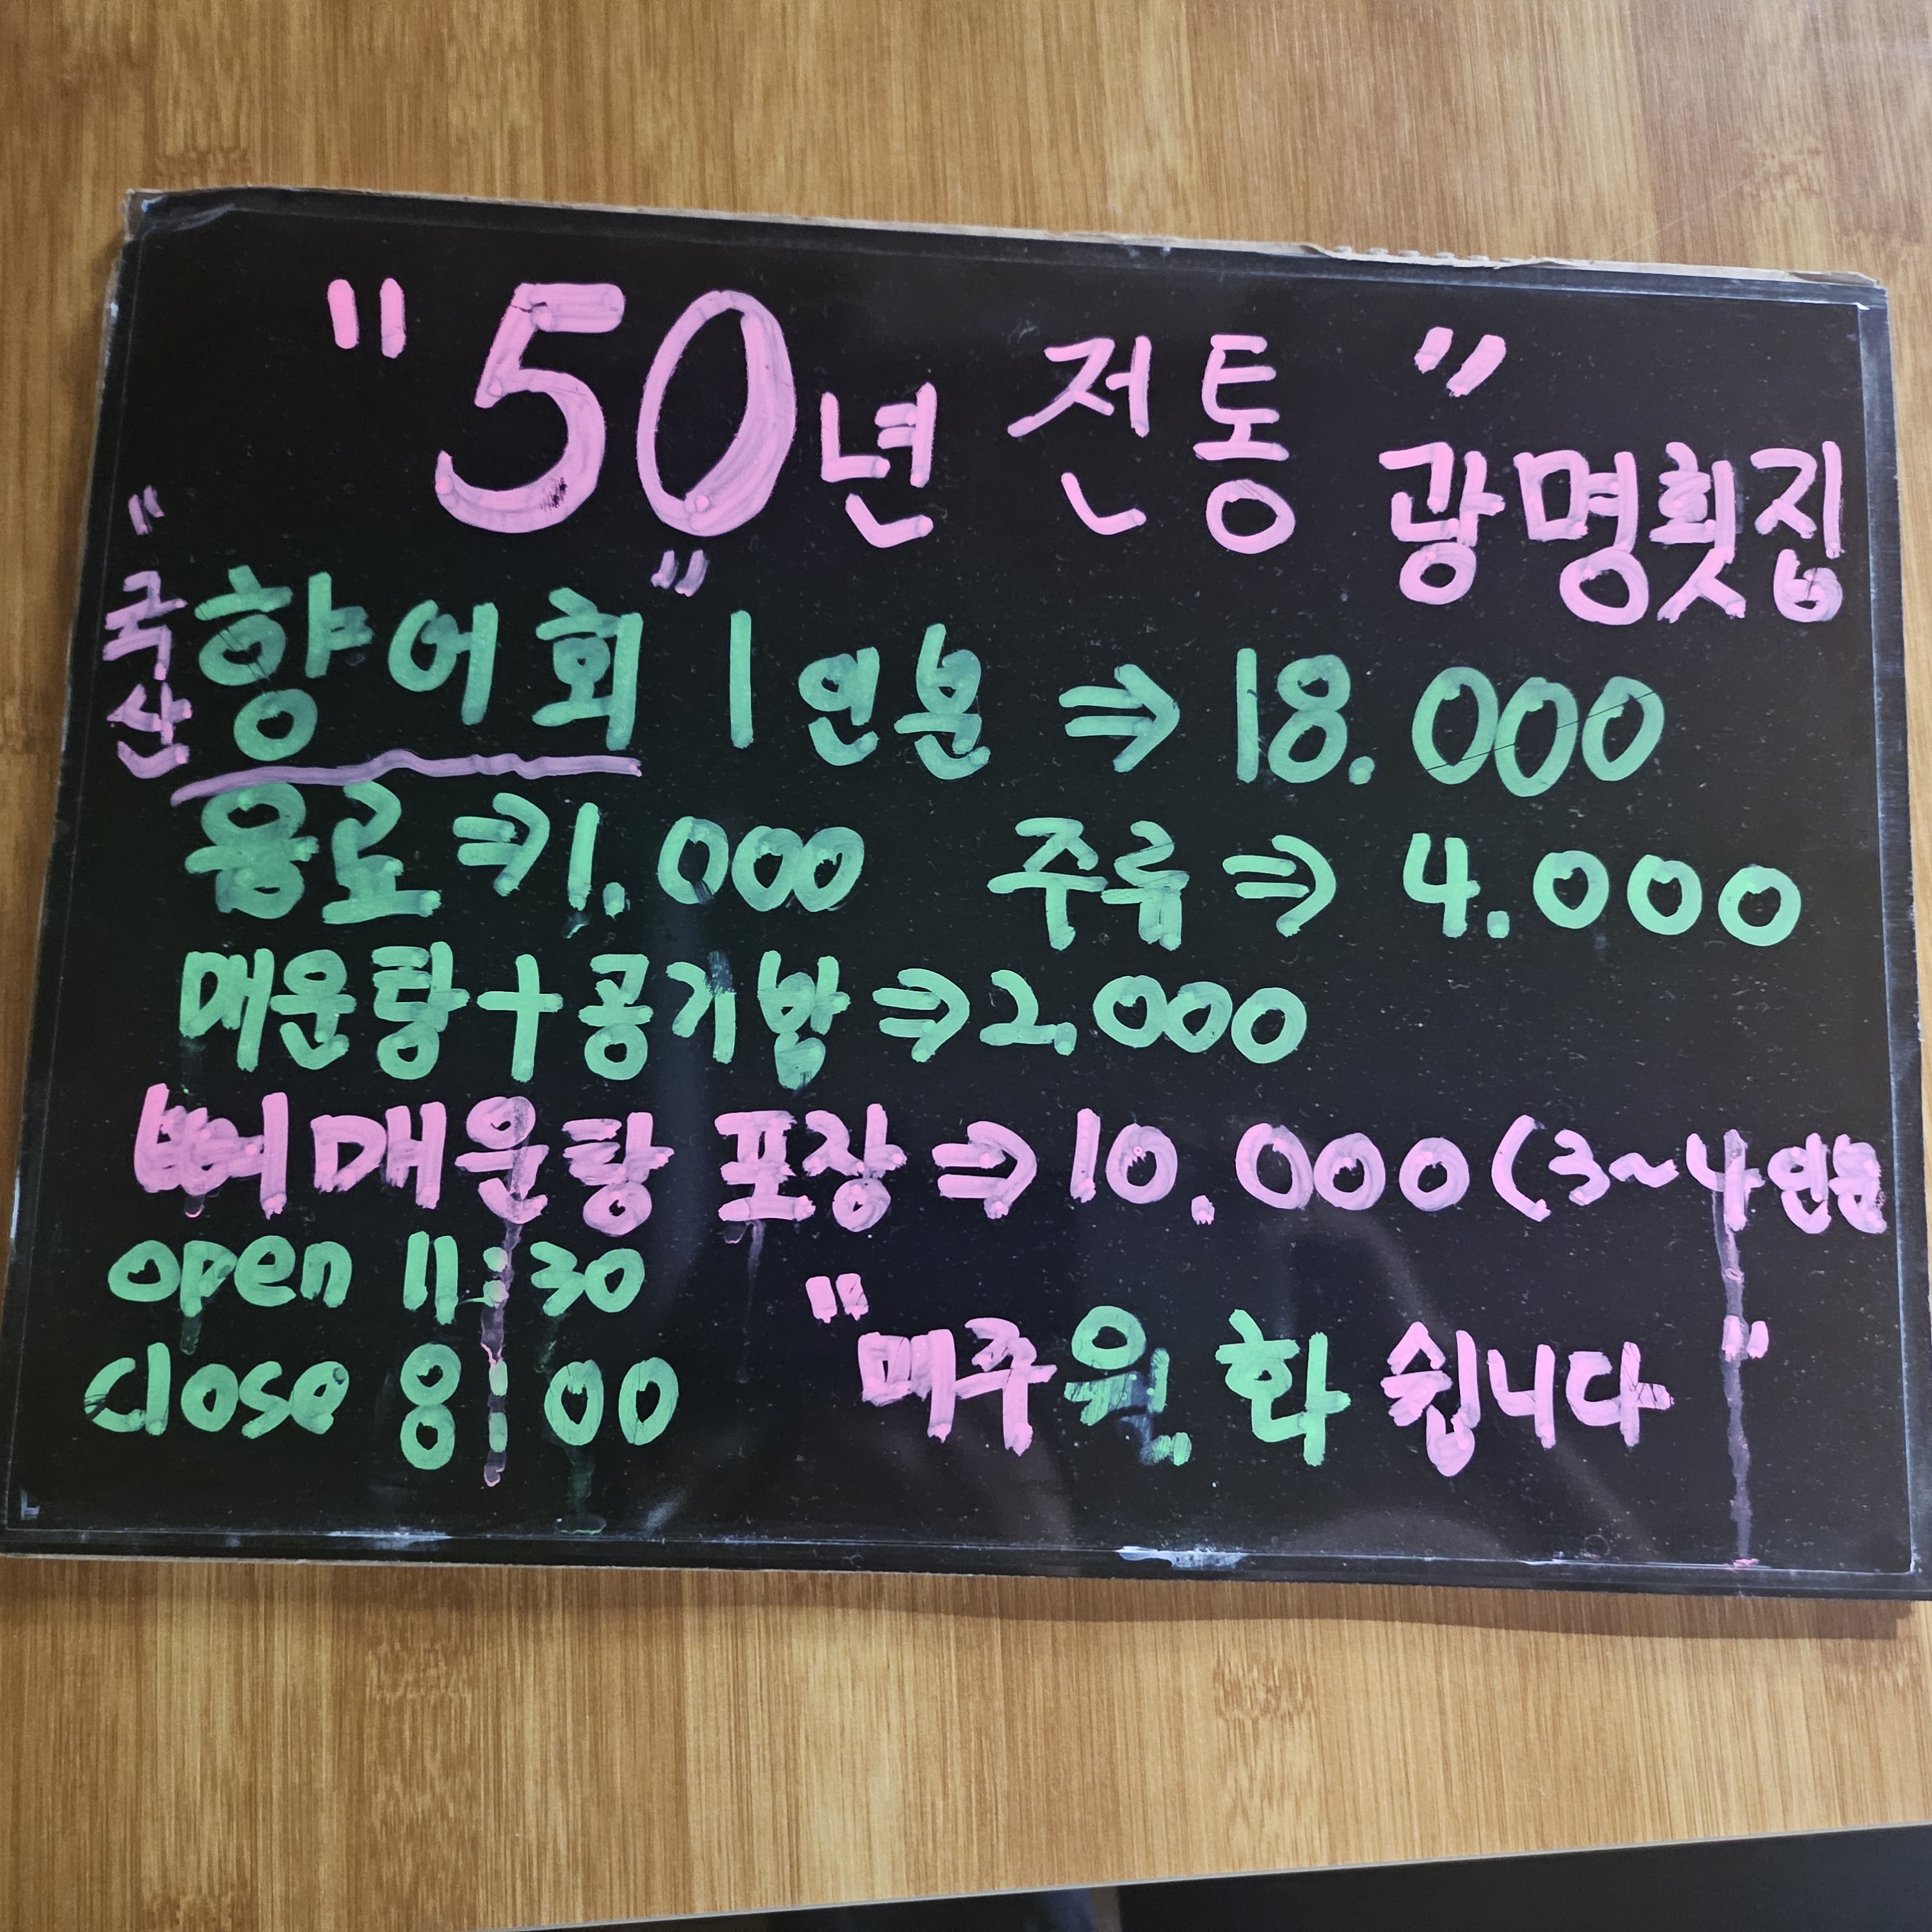 "50년 전통"
광명횟집
"국산 향어회" 1인분 ⇒ 18.000
음료 ⇒ 1.000 주류 ⇒ 4.000
매운탕+공기밥 ⇒ 2,000
뼈매운탕 포장 ⇒ 10.000 (3~4인분
open 11:30
close 8:00
"매주 월, 화 쉽니다"